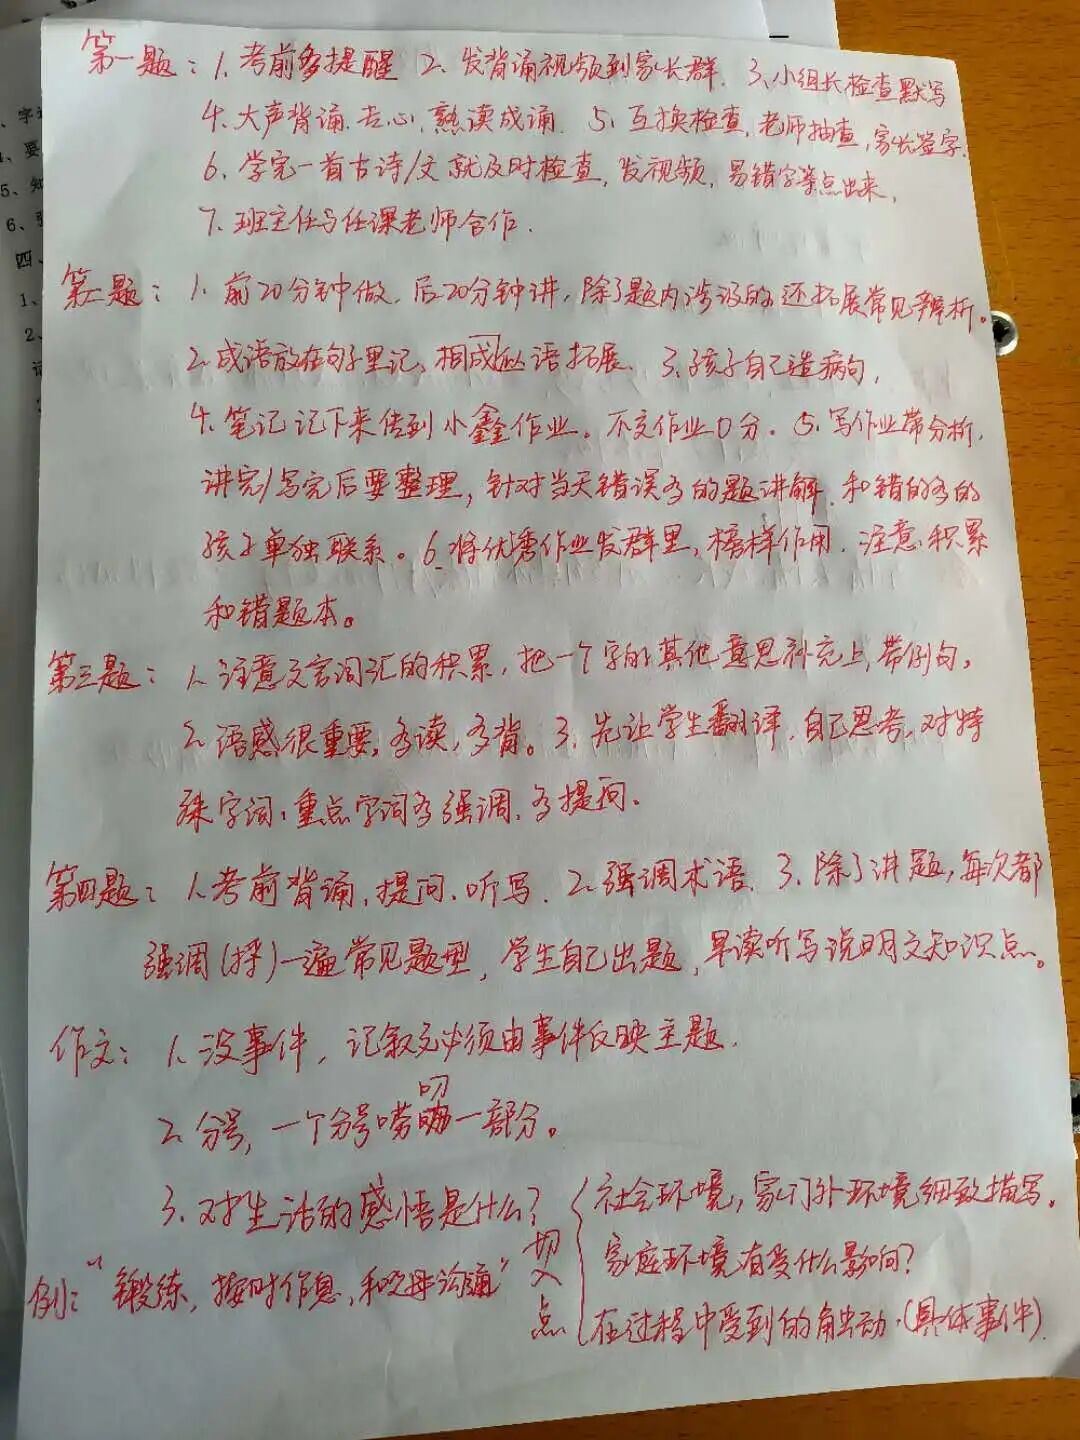 第一题：1、考前多提醒 2、发背诵视频到家长群. 3、小组长检查默写
4、大声背诵、走心、熟读成诵. 5、互换检查,老师抽查,家长签字.
6、学完一首古诗/文就及时检查,发视频,易错字等点出来,
7、班主任与任课老师合作.
第二题：1、前20分钟做,后20分钟讲,除了题内涉及的还拓展常见辨析。
2、成语放在句子里记、相成语拓展、3、孩子自己造病句,
4、笔记记下来传到小鑫作业。不交作业0分。5、写作业带分析,
讲完/写完后要整理,针对当天错误多的题讲解,和错的多的
孩子单独联系。6、将优秀作业发群里,榜样作用. 注意积累
和错题本。
第三题：1、注意文言词汇的积累,把一个字的其他意思补充上,带例句。
2、语感很重要,多读,多背。3、先让学生翻译,自己思考,对特
殊字词,重点字词多强调,多提问.
第四题：1、考前背诵,提问、听写. 2、强调术语、3、除了讲题,每次都
强调(捋)一遍常见题型,学生自己出题,早读听写说明文知识点。
作文：1、没事件,记叙文必须由事件反映主题.
叨
2、分号,一个分号唠一部分。
3、对生活的感悟是什么? 社会环境,家门外环境细致描写.
切入点 家庭环境有受什么影响?
例："锻练,按时作息,和父母沟通" 在过程中受到的触动.(具体事件).
四、
1、
2、
5、知
6、